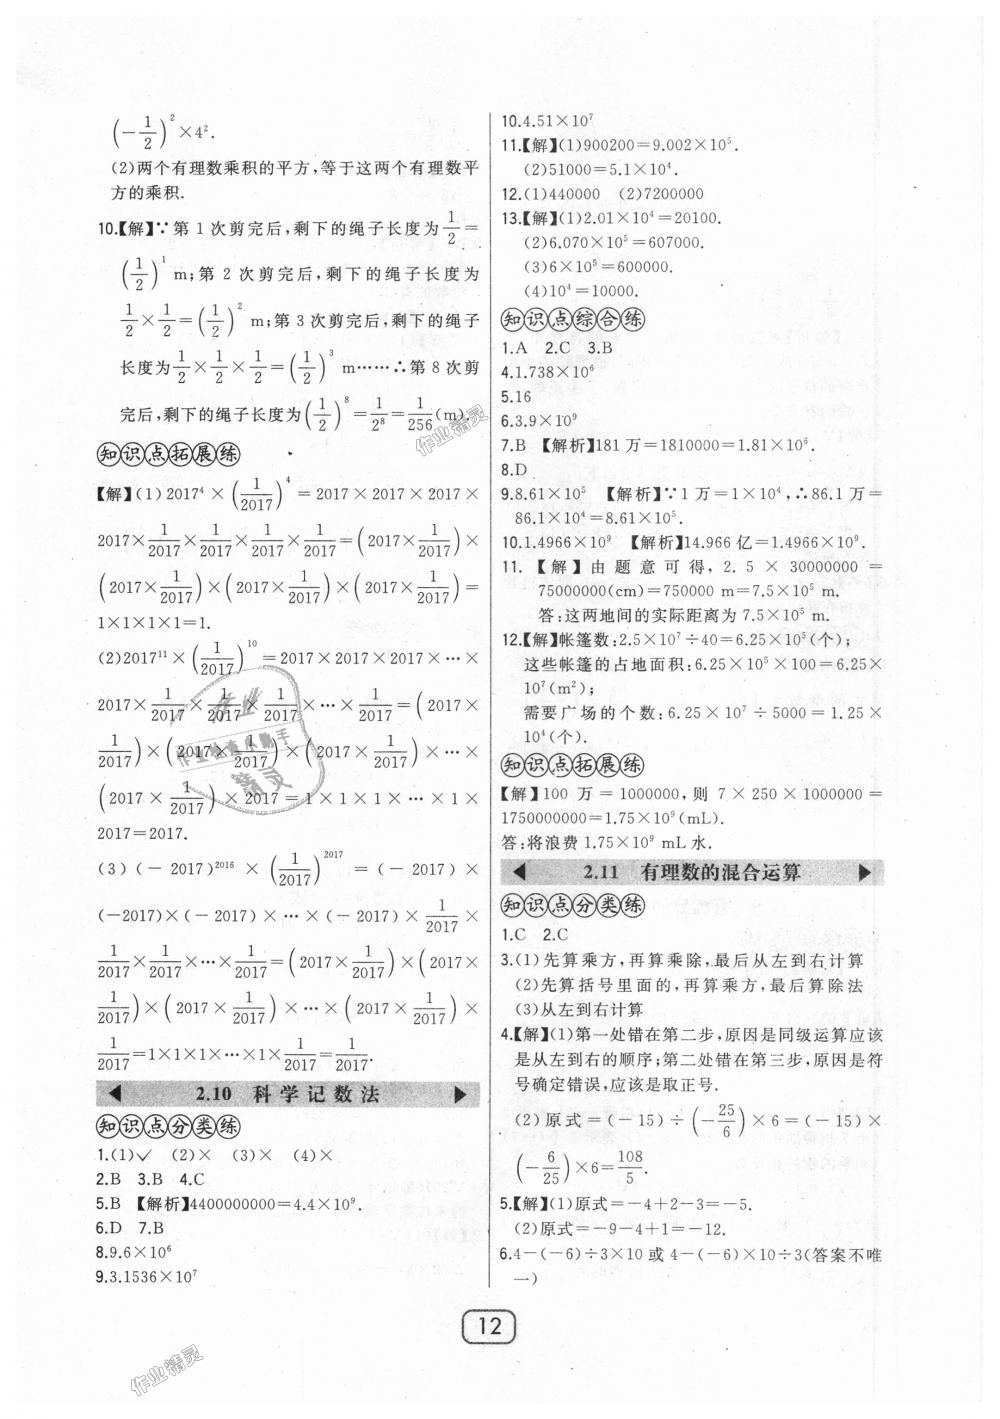 (-1/2)²×4².
(2)两个有理数乘积的平方,等于这两个有理数平
方的乘积.
10.【解】∵第 1 次剪完后,剩下的绳子长度为1/2=
(1/2)¹ m;第 2 次剪完后,剩下的绳子长度为
1/2×1/2=(1/2)² m;第 3 次剪完后,剩下的绳子
长度为1/2×1/2×1/2=(1/2)³ m……∴第 8 次剪
完后,剩下的绳子长度为(1/2)⁸=1/2⁸=1/256(m).
知识点拓展练
【解】(1)2017⁴×(1/2017)⁴=2017×2017×2017×
2017×1/2017×1/2017×1/2017×1/2017=(2017×1/2017)×
(2017×1/2017)×(2017×1/2017)×(2017×1/2017)=
1×1×1×1=1.
(2)2017¹¹×(1/2017)¹⁰=2017×2017×2017×…×
2017×1/2017×1/2017×1/2017×…×1/2017=(2017×
1/2017)×(2017×1/2017)×(2017×1/2017)×…×
(2017×1/2017)×2017=1×1×1×…×1×
2017=2017.
(3)(-2017)²⁰¹⁶×(1/2017)²⁰¹⁷=(-2017)×
(-2017)×(-2017)×…×(-2017)×1/2017×
1/2017×1/2017×…×1/2017=(2017×1/2017)×(2017×
1/2017)×(2017×1/2017)×…×(2017×1/2017)×
1/2017=1×1×1×…×1×1/2017=1/2017.
2.10 科学记数法
知识点分类练
1.(1)✓ (2)× (3)× (4)×
2.B 3.B 4.C
5.B 【解析】4400000000=4.4×10⁹.
6.D 7.B
8.9.6×10⁶
9.3.1536×10⁷
10.4.51×10⁷
11.【解】(1)900200=9.002×10⁵.
(2)51000=5.1×10⁴.
12.(1)440000 (2)7200000
13.【解】(1)2.01×10⁴=20100.
(2)6.070×10⁵=607000.
(3)6×10⁵=600000.
(4)10⁴=10000.
知识点综合练
1.A 2.C 3.B
4.1.738×10⁶
5.16
6.3.9×10⁹
7.B 【解析】181 万=1810000=1.81×10⁶.
8.D
9.8.61×10⁵ 【解析】∵1 万=1×10⁴,∴86.1 万=
86.1×10⁴=8.61×10⁵.
10.1.4966×10⁹ 【解析】14.966 亿=1.4966×10⁹.
11.【解】由题意可得,2.5×30000000=
75000000(cm)=750000 m=7.5×10⁵ m.
答:这两地间的实际距离为 7.5×10⁵ m.
12.【解】帐篷数:2.5×10⁷÷40=6.25×10⁵(个);
这些帐篷的占地面积:6.25×10⁵×100=6.25×
10⁷(m²);
需要广场的个数:6.25×10⁷÷5000=1.25×
10⁴(个).
知识点拓展练
【解】100 万=1000000,则 7×250×1000000=
1750000000=1.75×10⁹(mL).
答:将浪费 1.75×10⁹ mL 水.
2.11 有理数的混合运算
知识点分类练
1.C 2.C
3.(1)先算乘方,再算乘除,最后从左到右计算
(2)先算括号里面的,再算乘方,最后算除法
(3)从左到右计算
4.【解】(1)第一处错在第二步,原因是同级运算应该
是从左到右的顺序;第二处错在第三步,原因是符
号确定错误,应该是取正号.
(2)原式=(-15)÷(-25/6)×6=(-15)×
(-6/25)×6=108/5.
5.【解】(1)原式=-4+2-3=-5.
(2)原式=-9-4+1=-12.
6.4-(-6)÷3×10 或 4-(-6)×10÷3(答案不唯
一)
12
作业精灵
作业精灵
作业
作业检查小助手
精灵